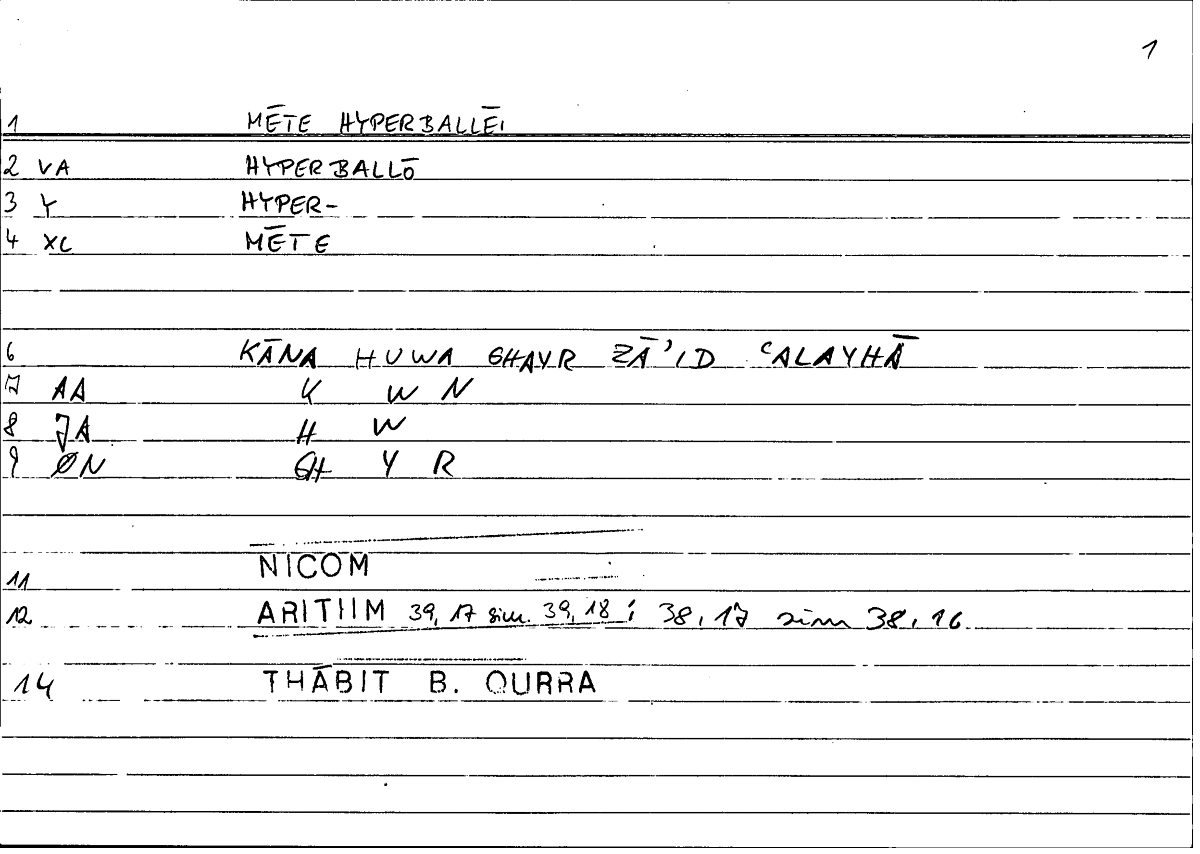 1
1 MĒTE HYPERBALLĒI
2 VA HYPERBALLŌ
3 Y HYPER-
4 XC MĒTE
6 KĀNA HUWA GHAYR ZĀʾID ʿALAYHĀ
7 AA K W N
8 JA H W
9 ØN GH Y R
NICOM
11
12 ARITIIM 39, 17 sim. 39, 18 ; 38, 17 sim 38, 16
14 THĀBIT B. QURRA